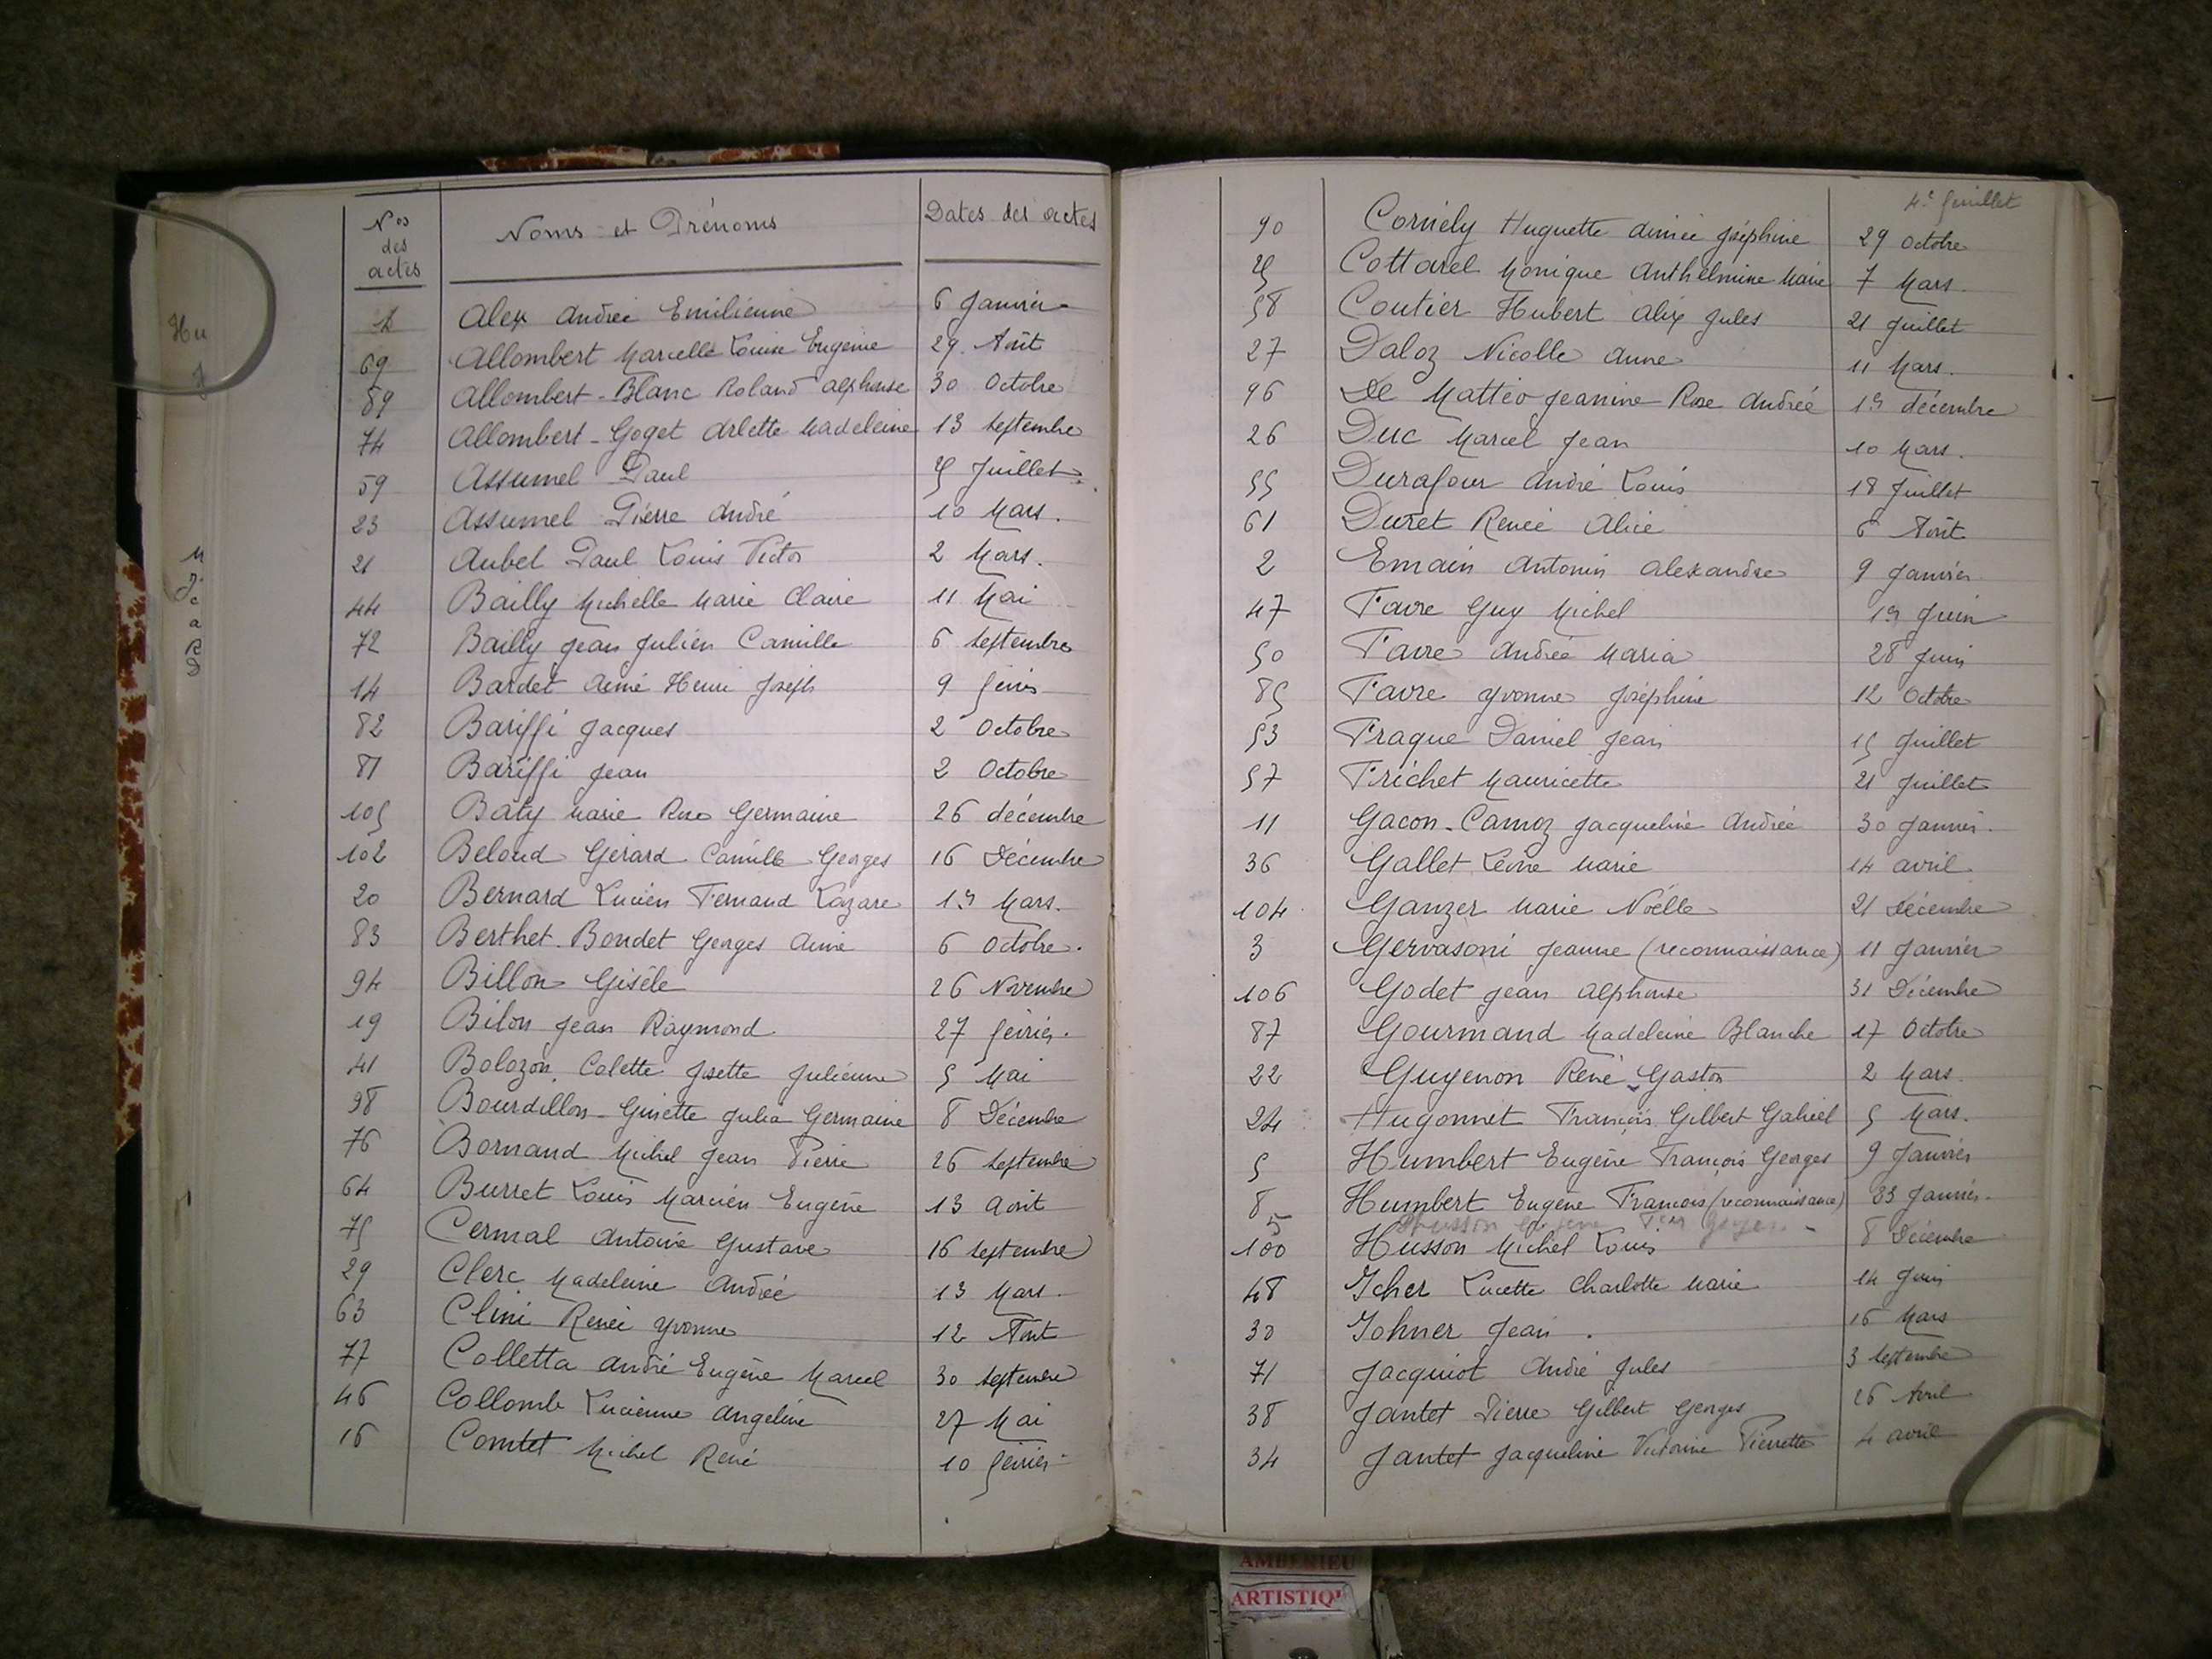 Nos des actes | Noms et Prénoms | Dates des actes
1 Alex Andrée Emilienne 6 Janvier
69 Allombert Marcelle Louise Eugénie 29 Août
89 Allombert-Blanc Roland Alphonse 30 Octobre
74 Allombert-Goget Arlette Madeleine 13 septembre
59 Assumel Paul 25 Juillet
23 Assumel Pierre André 10 Mars.
21 Aubel Paul Louis Victor 2 Mars.
44 Bailly Michelle Marie Claire 11 Mai
72 Bailly Jean Julien Camille 6 septembre
14 Bardet Aimé Henri Joseph 9 février
82 Bariffi Jacques 2 Octobre
81 Bariffi Jean 2 Octobre
105 Bâty Marie Rose Germaine 26 décembre
102 Beloud Gérard Camille Georges 16 Décembre
20 Bernard Lucien Fernand Lazare 1er Mars.
83 Berthet-Bondet Georges Aimé 6 Octobre.
94 Billon Gisèle 26 Novembre
19 Bilon Jean Raymond 27 février.
41 Bolozon Colette Josette Julienne 5 Mai
98 Bourdillon Ginette Julia Germaine 8 Décembre
76 Bornand Michel Jean Pierre 26 septembre
64 Burret Louis Marcien Eugène 13 Août
75 Cermal Antoine Gustave 16 septembre
29 Clerc Madeleine Andrée 13 Mars.
63 Clini Renée Yvonne 12 Août
77 Colletta André Eugène Marcel 30 septembre
46 Collomb Lucienne Angeline 27 Mai
16 Comtet Michel René 10 février
4e feuillet
90 Cornély Huguette Aimée Joséphine 29 Octobre
25 Cottarel Monique Anthelmine Marie 7 Mars.
58 Coutier Hubert Alix Jules 21 Juillet
27 Daloz Nicolle Anne 11 Mars.
96 De Mattéo Jeanine Rose Andrée 1er décembre
26 Duc Marcel Jean 10 Mars.
55 Durafour André Louis 18 Juillet
61 Duret Renée Alice 6 Août
2 Emain Antonin Alexandre 9 Janvier
47 Favre Guy Michel 1er Juin
50 Favre Andrée Maria 28 Juin
85 Favre Yvonne Joséphine 12 Octobre
53 Fraque Daniel Jean 15 Juillet
57 Frichet Mauricette 21 Juillet
11 Gacon-Camoz Jacqueline Andrée 30 Janvier.
36 Gallet Léone Marie 14 avril
104 Ganzer Marie Noëlle 21 Décembre
3 Gervasoni Jeanne (reconnaissance) 11 Janvier
106 Godet Jean Alphonse 31 Décembre
87 Gourmand Madeleine Blanche 17 Octobre
22 Guyenon René Gaston 2 Mars
24 Hugonnet François Gilbert Gabriel 5 Mars.
5 Humbert Eugène François Georges 9 Janvier
8 Humbert Eugène François (reconnaissance) 23 Janvier.
5 Husson
100 Husson Michel Louis 8 Décembre
48 Icher Lucette Charlotte Marie 14 Juin
30 Iohner Jean. 16 Mars
71 Jacquiot André Jules 3 septembre
38 Jantet Pierre Gilbert Georges 26 Avril
34 Jantet Jacqueline Victorine Pierrette 4 avril
Hu
AMBERIEU
ARTISTIQU